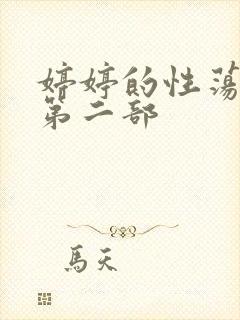 婷婷的性荡
第二部
馬天